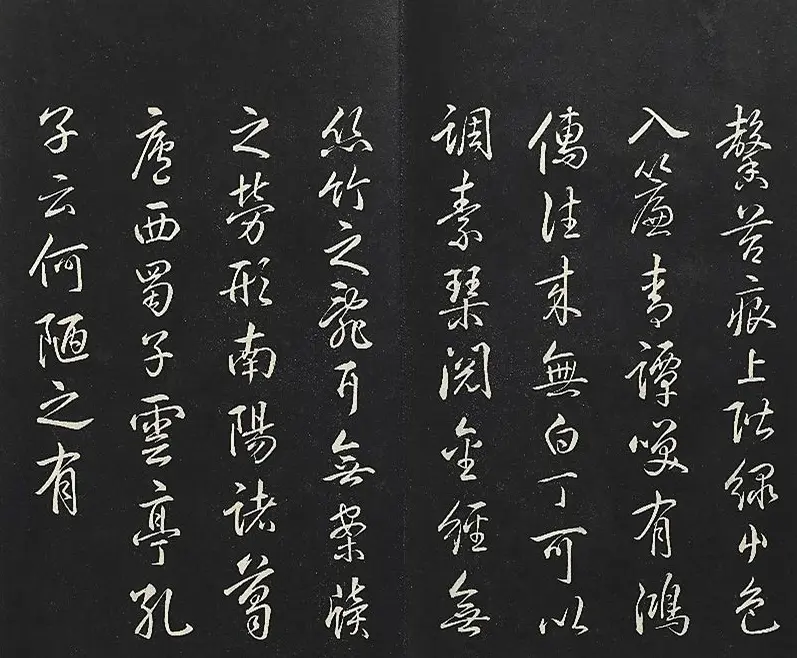 馨苔痕上阶绿屮色
入簾青譚咲有鴻
儒往来無白丁可以
调素琴阅金經無
丝竹之亂耳無案牘
之勞形南陽诸葛
廬西蜀子雲亭孔
子云何陋之有